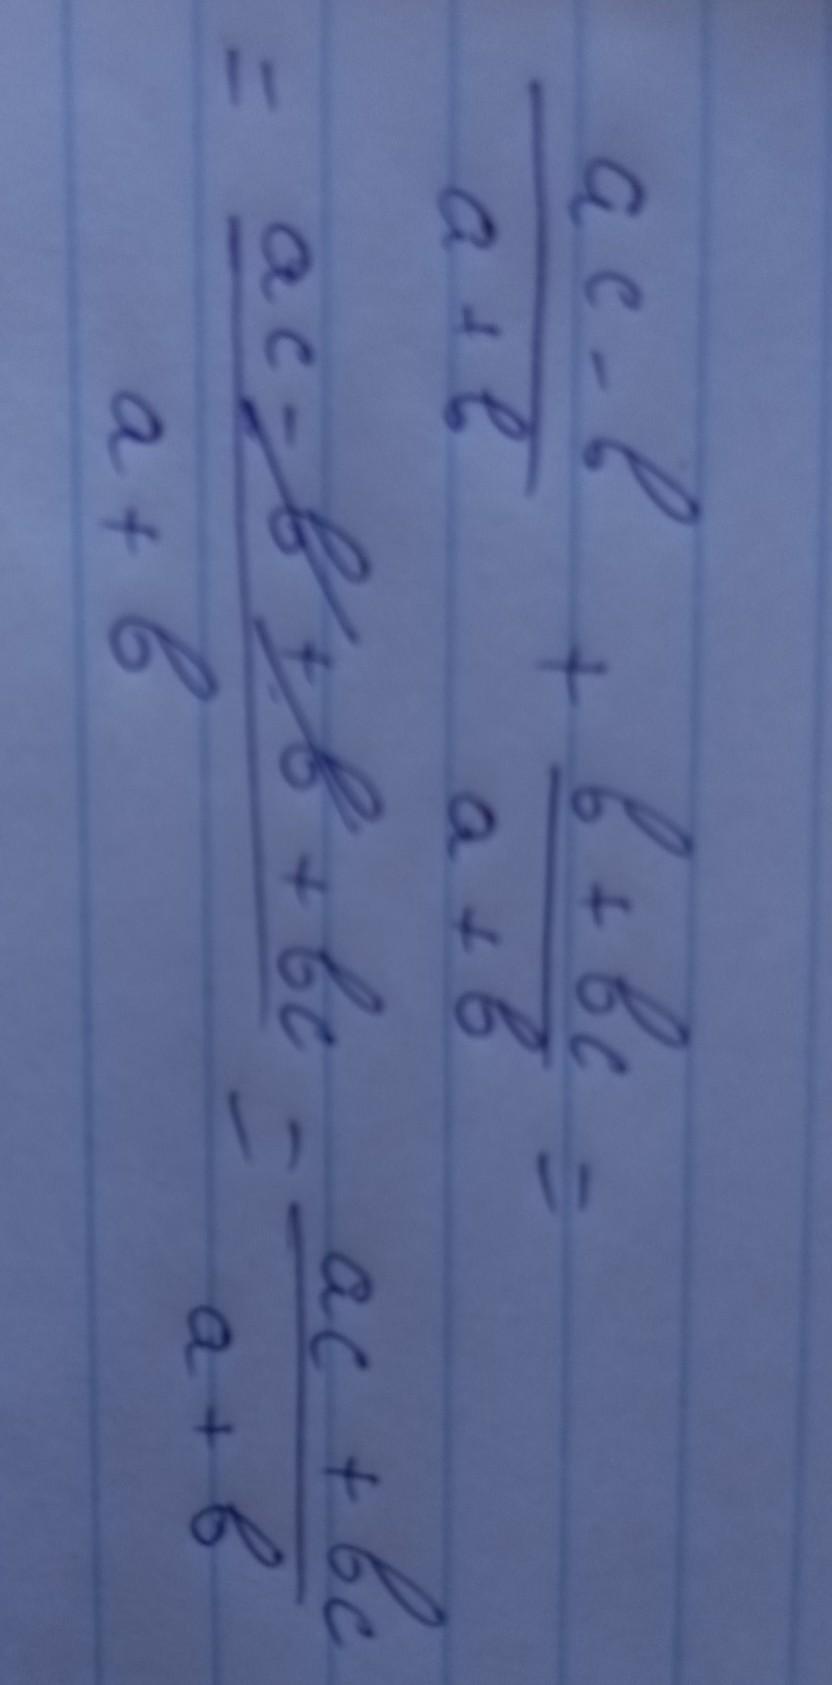 ac - b / a + b + b + bc / a + b =
= ac - b + b + bc / a + b = ac + bc / a + b